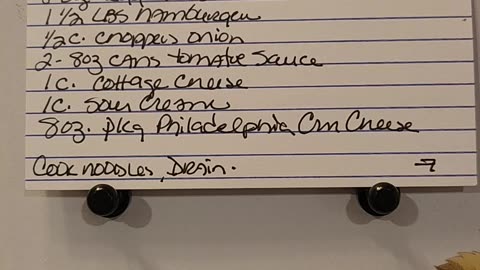 1 1/2 LBS hamburger
1/2 c. chopped onion
2-8oz cans tomato sauce
1c. Cottage Cheese
1c. Sour Cream
8oz. pkg Philadelphia Crm Cheese
Cook noodles, Drain. →